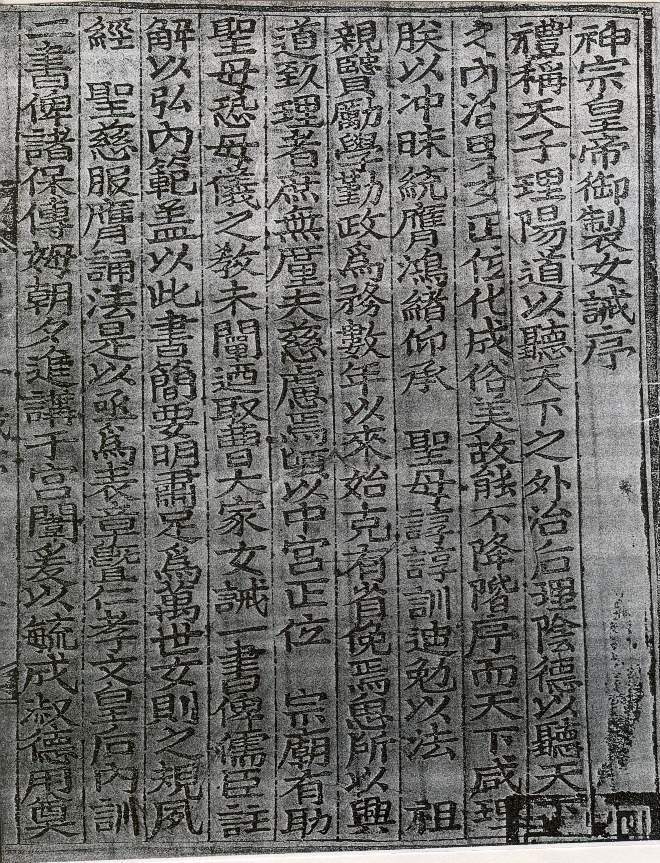 神宗皇帝御製女誡序
禮稱天子理陽道以聽天下之外治后理陰德以聽天下
之內治男女正位化成俗美故能不降階序而天下咸理
朕以冲昧統膺鴻緒仰承　聖母諄諄訓迪勉以法　祖
親賢勵學勤政爲務數年以來始克有省俛焉思所以興
道致理者庶無廑夫慈慮焉頃以中宮正位　宗廟有助
聖母恐母儀之敎未閑迺取曹大家女誡一書俾儒臣註
解以弘內範盖以此書簡要明肅足爲萬世女則之規夙
經　聖慈服膺誦法是以亟爲表章曁仁孝文皇后內訓
二書俾諸保傳姆朝夕進講于宮闈爰以毓成叔德用奠